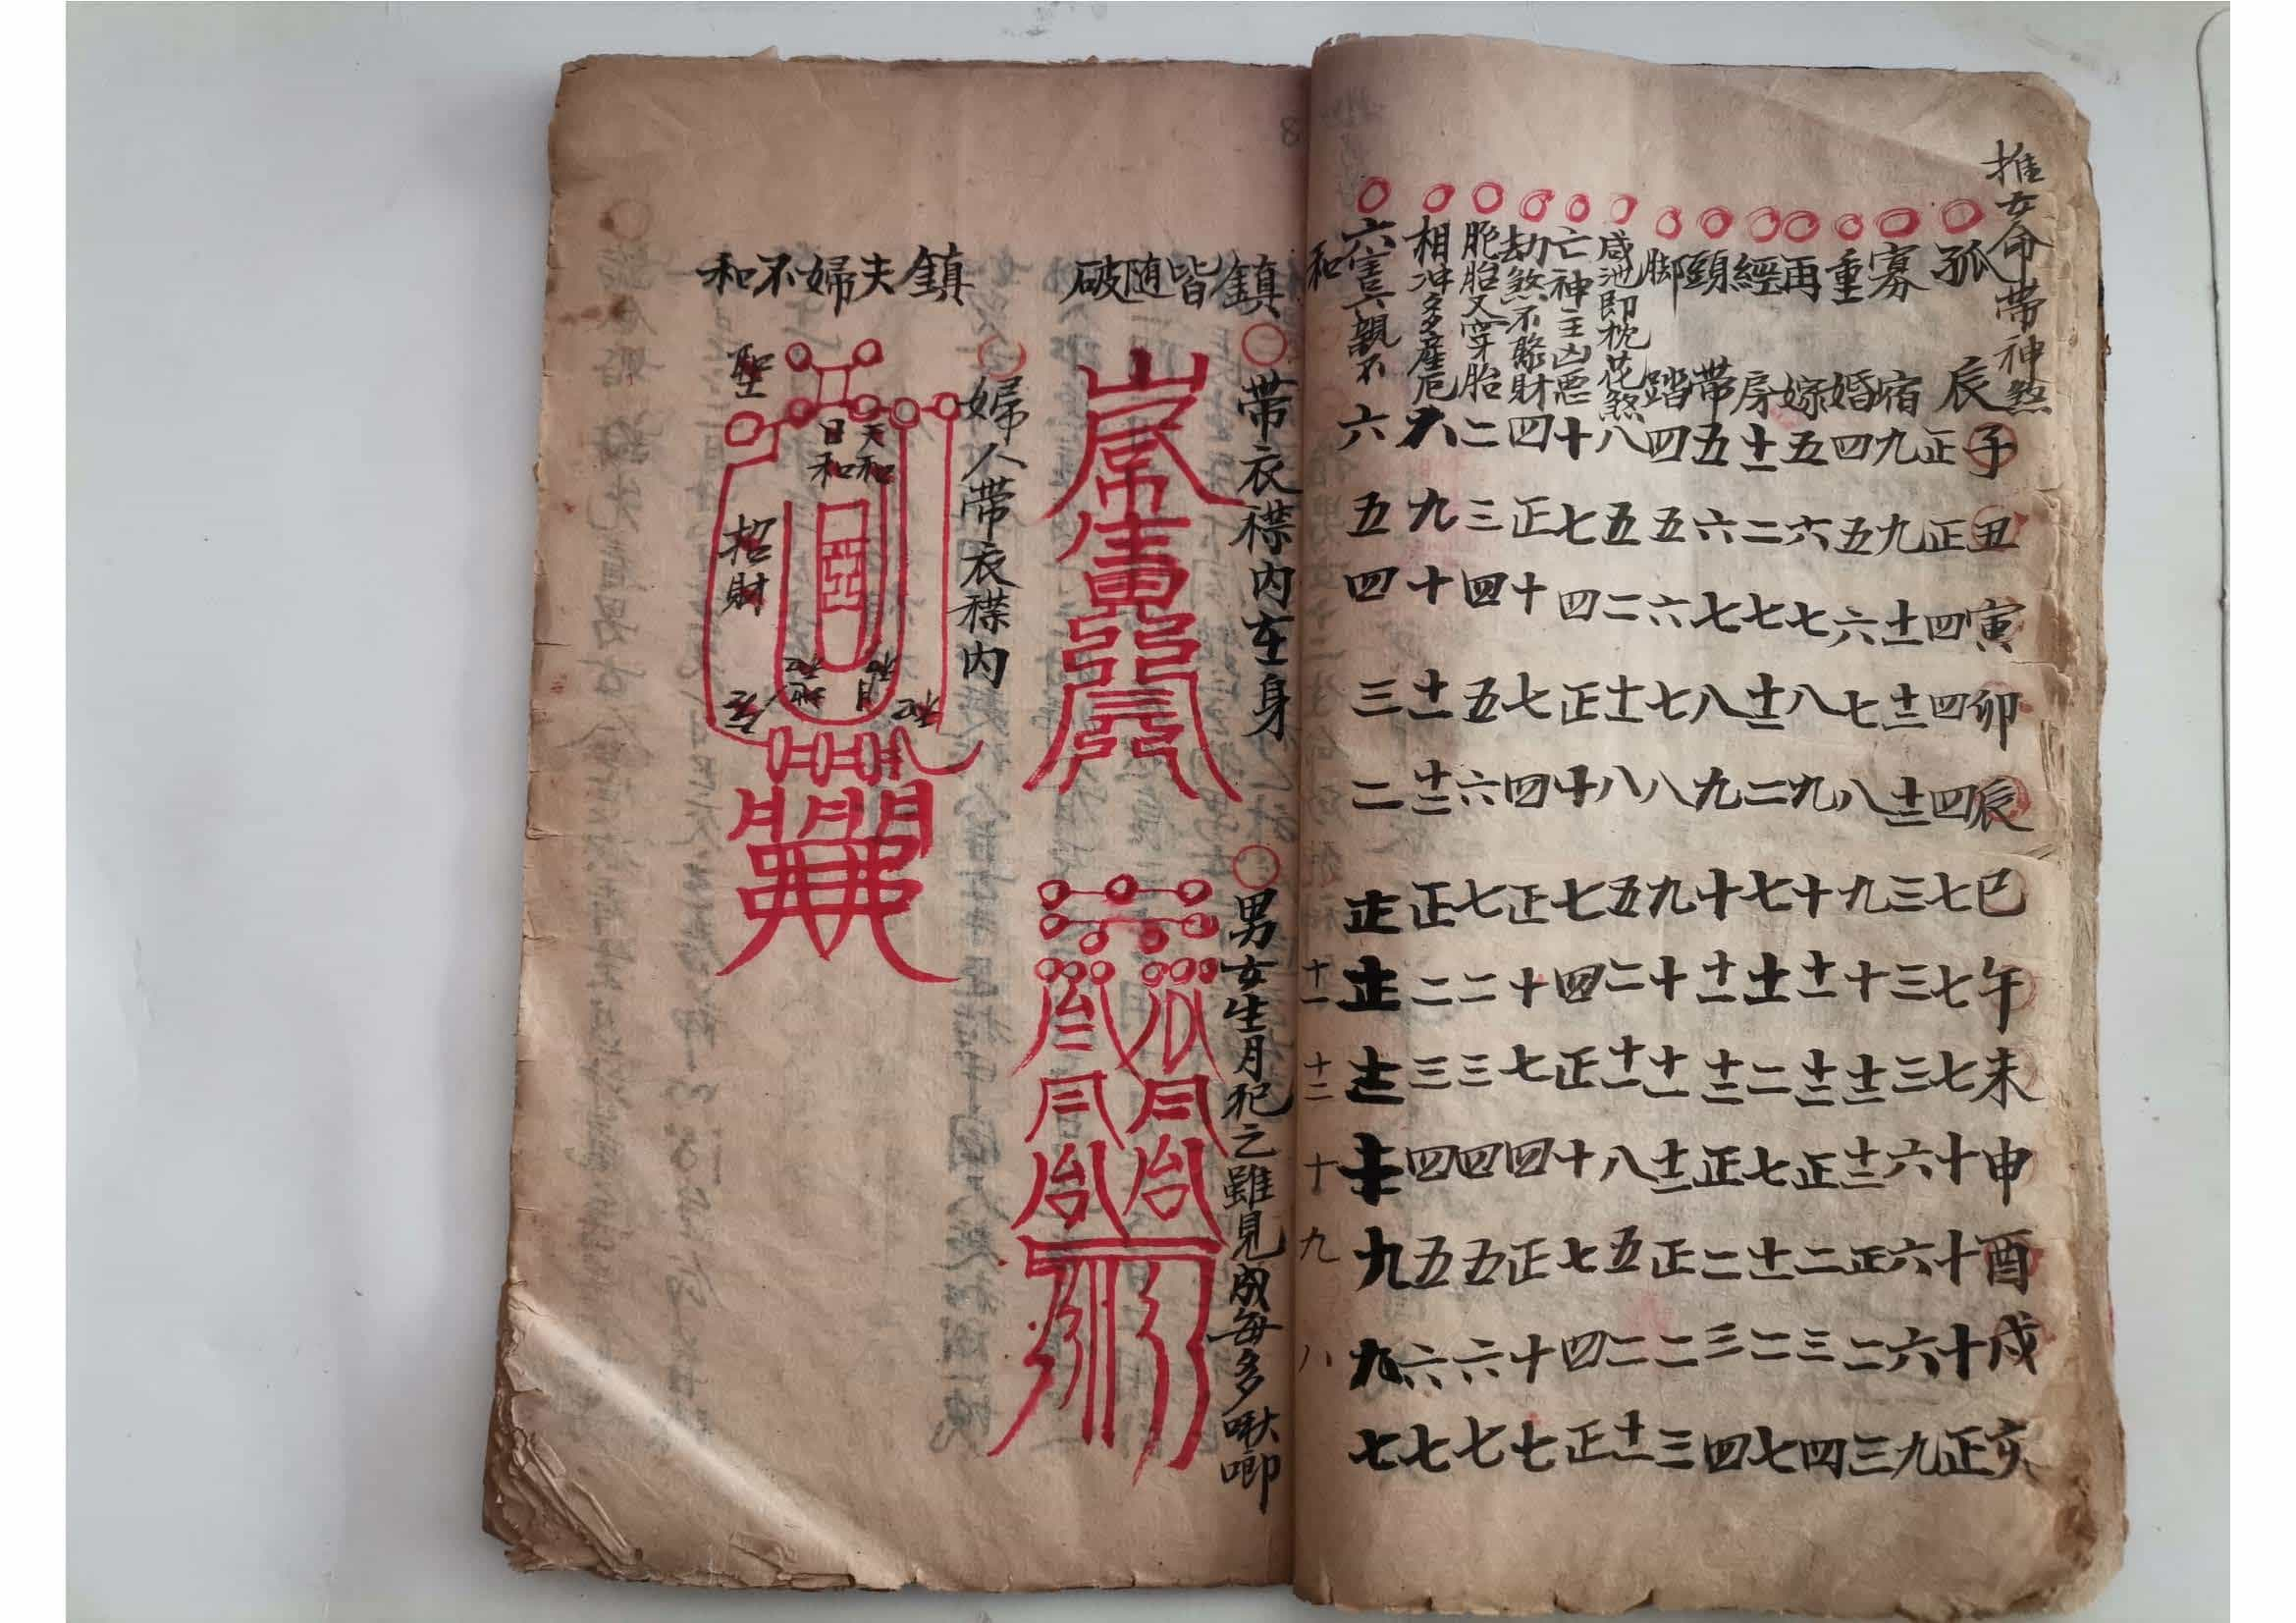 推女命帶神煞子丑寅卯辰巳午未申酉戌亥
孤辰正正四四四七七七十十十正
寡宿九九十二十二十二三三三六六六九
重婚四五六七八九十十一十二正二三
再嫁五六七八九十十一十二正二三四
經房十一二七十一二七十一二七十一二七
頸帶五六七八九十十一十二正二三四
脚踏四五六七八九十十一十二正二三
咸池即桃花煞八五二十一八五二十一八五二十一
亡神主凶惡十七四正十七四正十七四正
劫煞不聚財四正十七四正十七四正十七
胞胎又穿胎二三四五六七二三四五六七
相冲多產厄八九十十一十二正二三四五六七
六害六親不六五四三二正九七
和十一十二十九八
鎮皆随破
帶衣襟内在身
男女生月犯之雖見成每多啾唧
鎮夫婦不和
婦人帶衣襟内
天和
日和
月和
地和
聖
招財